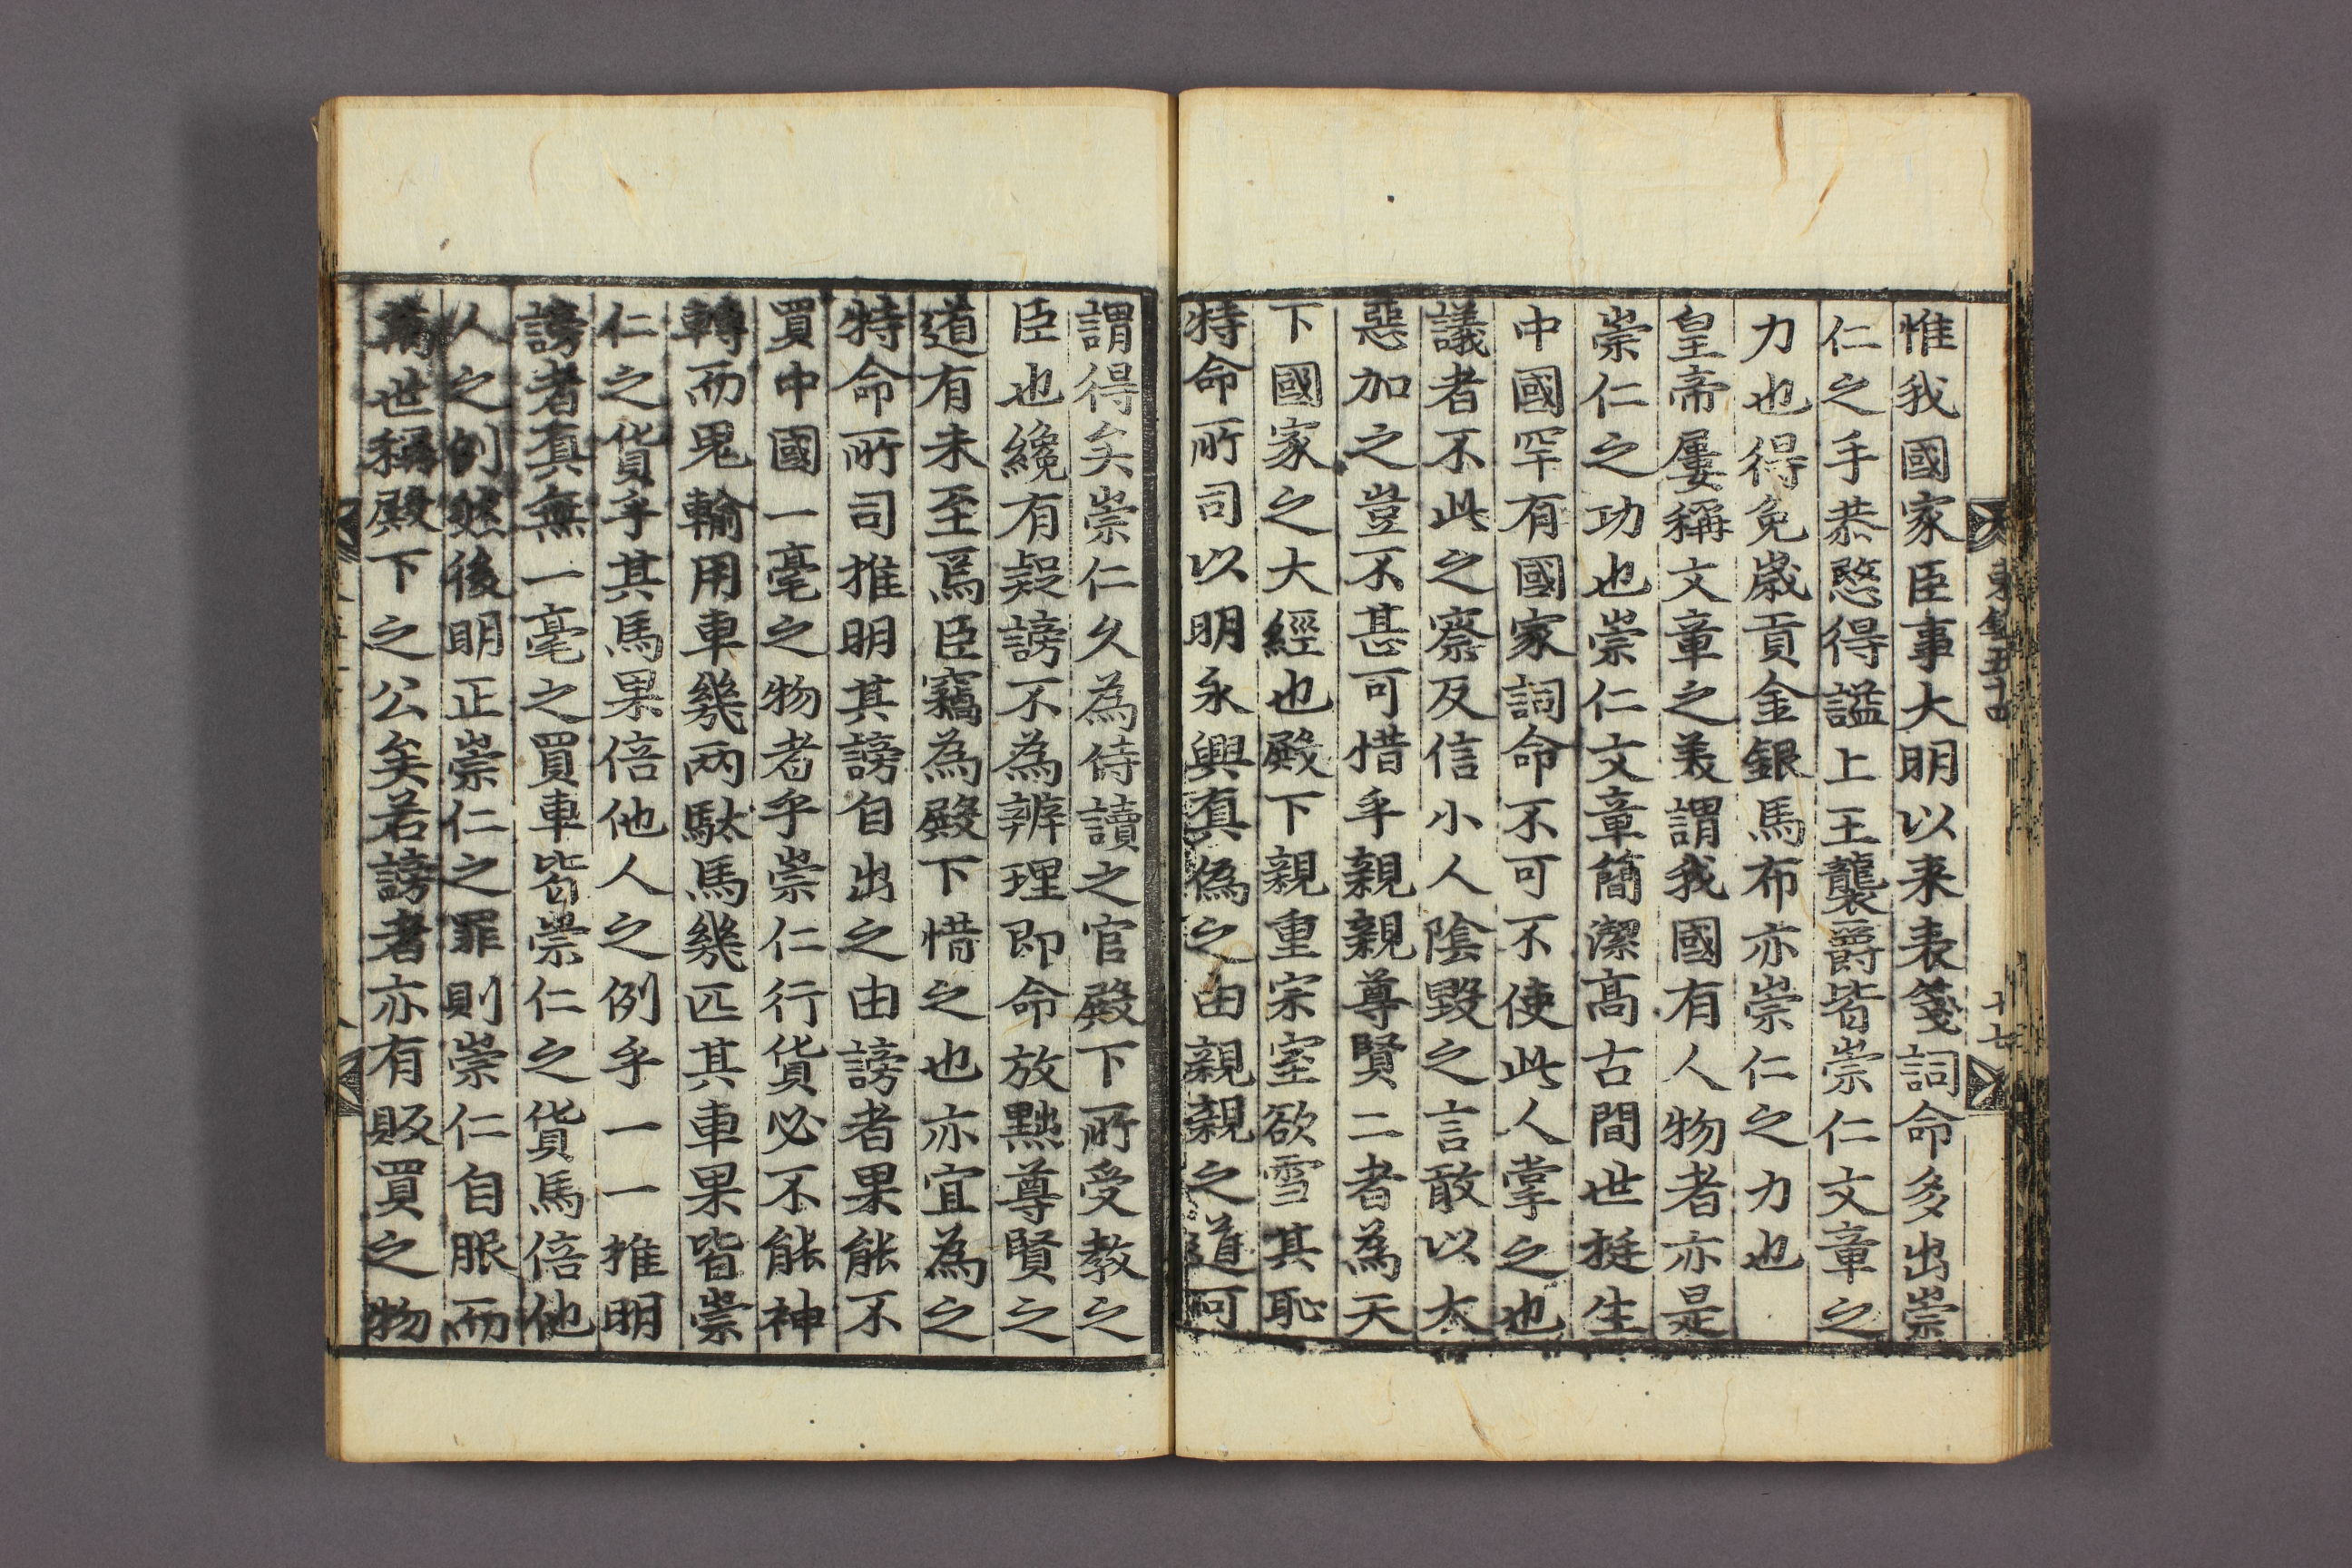 惟我國家臣事大明以来表箋詞命多出崇
仁之手恭愍得謚上王襲爵皆崇仁文章之
力也得免歲貢金銀馬布亦崇仁之力也
皇帝屢稱文章之美謂我國有人物者亦是
崇仁之功也崇仁文章簡潔高古間世挺生
中國罕有國家詞命不可不使此人掌之也
議者不此之察反信小人陰毀之言敢以大
惡加之豈不甚可惜乎親親尊賢二者為天
下國家之大經也殿下親重宗室欲雪其恥
特命所司以明永興真偽之由親親之道可
東文五十四
十七
謂得矣崇仁久為侍讀之官殿下所受教之
臣也纔有疑謗不為辨理即命放黜尊賢之
道有未至焉臣竊為殿下惜之也亦宜為之
特命所司推明其謗自出之由謗者果能不
買中國一毫之物者乎崇仁行貨必不能神
轉而鬼輸用車幾兩馱馬幾匹其車果皆崇
仁之貨乎其馬果倍他人之例乎一一推明
謗者真無一毫之買車皆崇仁之貨馬倍他
人之例然後明正崇仁之罪則崇仁自服而
世稱殿下之公矣若謗者亦有販買之物